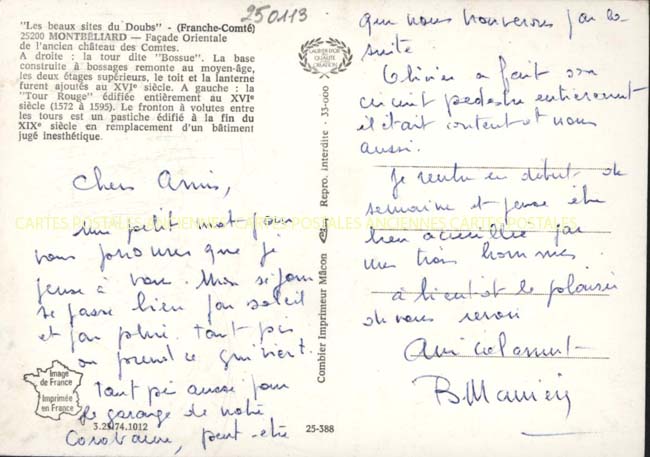 250113
"Les beaux sites du Doubs" - (Franche-Comté)
25200 MONTBÉLIARD — Façade Orientale
de l'ancien château des Comtes.
A droite : la tour dite "Bossue". La base
construite à bossages remonte au moyen-âge,
les deux étages supérieurs, le toit et la lanterne
furent ajoutés au XVIe siècle. A gauche : la
"Tour Rouge" édifiée entièrement au XVIe
siècle (1572 à 1595). Le fronton à volutes entre
les tours est un pastiche édifié à la fin du
XIXe siècle en remplacement d'un bâtiment
jugé inesthétique.
Chers Amis,
Un petit mot pour
vous prouver que je
pense à vous. Mon séjour
se passe bien par soleil
et par pluie tant pis
on prend ce qui vient.
Tant pis aussi pour
le garage de notre
Caravane, peut-être
Image
de France
Imprimée
en France
3.25.74.1012
25-388
Combier Imprimeur Mâcon
Repro. interdite - 33-000
LAURIER D'OR
DE LA
QUALITÉ
CRÉATION
que nous trouverons par la
suite
Olivier a fait son
circuit pédestre entièrement
il était content et nous
aussi.
Je rentre en début de
semaine et pense être
bien accueillie par
mes trois hommes
à bientôt le plaisir
de vous revoir
Amicalement
CARTES POSTALES ANCIENNES CARTES POSTALES ANCIENNES CARTES POSTALES